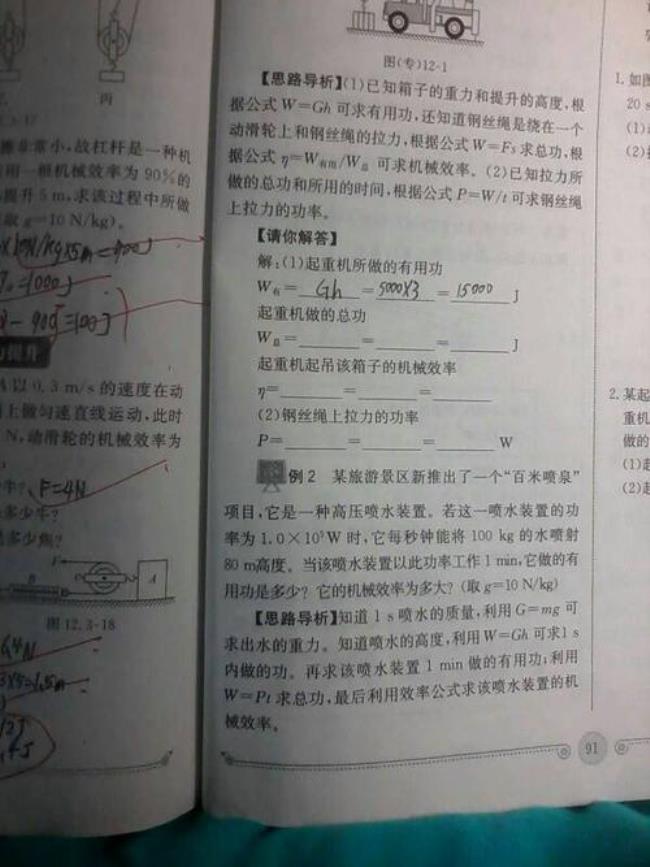 丙
擦非常小,故杠杆是一种机
用一根机械效率为 90%的
提升 5 m,求该过程中所做
取 g=10 N/kg)。
×10N/kg×5m=900J
=1000J
-900J=100J
以 0.3 m/s 的速度在动
上做匀速直线运动,此时
N,动滑轮的机械效率为
F=4N
多少牛?
多少焦?
F
B
A
图 12.3-18
图(专)12-1
【思路导析】(1)已知箱子的重力和提升的高度,根
据公式 W=Gh 可求有用功,还知道钢丝绳是绕在一个
动滑轮上和钢丝绳的拉力,根据公式 W=Fs 求总功,根
据公式 η=W有用/W总 可求机械效率。(2)已知拉力所
做的总功和所用的时间,根据公式 P=W/t 可求钢丝绳
上拉力的功率。
【请你解答】
解:(1)起重机所做的有用功
W有= Gh = 5000×3 = 15000 J
起重机做的总功
W总=   =   =   J
起重机起吊该箱子的机械效率
η=   =   =
(2)钢丝绳上拉力的功率
P=   =   =   W
例 2 某旅游景区新推出了一个“百米喷泉”
项目,它是一种高压喷水装置。若这一喷水装置的功
率为 1.0×10⁵W 时,它每秒钟能将 100 kg 的水喷射
80 m高度。当该喷水装置以此功率工作 1 min,它做的有
用功是多少? 它的机械效率为多大? (取 g=10 N/kg)
【思路导析】知道 1 s 喷水的质量,利用 G=mg 可
求出水的重力。知道喷水的高度,利用 W=Gh 可求1 s
内做的功。再求该喷水装置 1 min 做的有用功;利用
W=Pt 求总功,最后利用效率公式求该喷水装置的机
械效率。
91
1. 如图
20 s
(1)
(2)
2. 某起
重机
做的
(1)起
(2)起